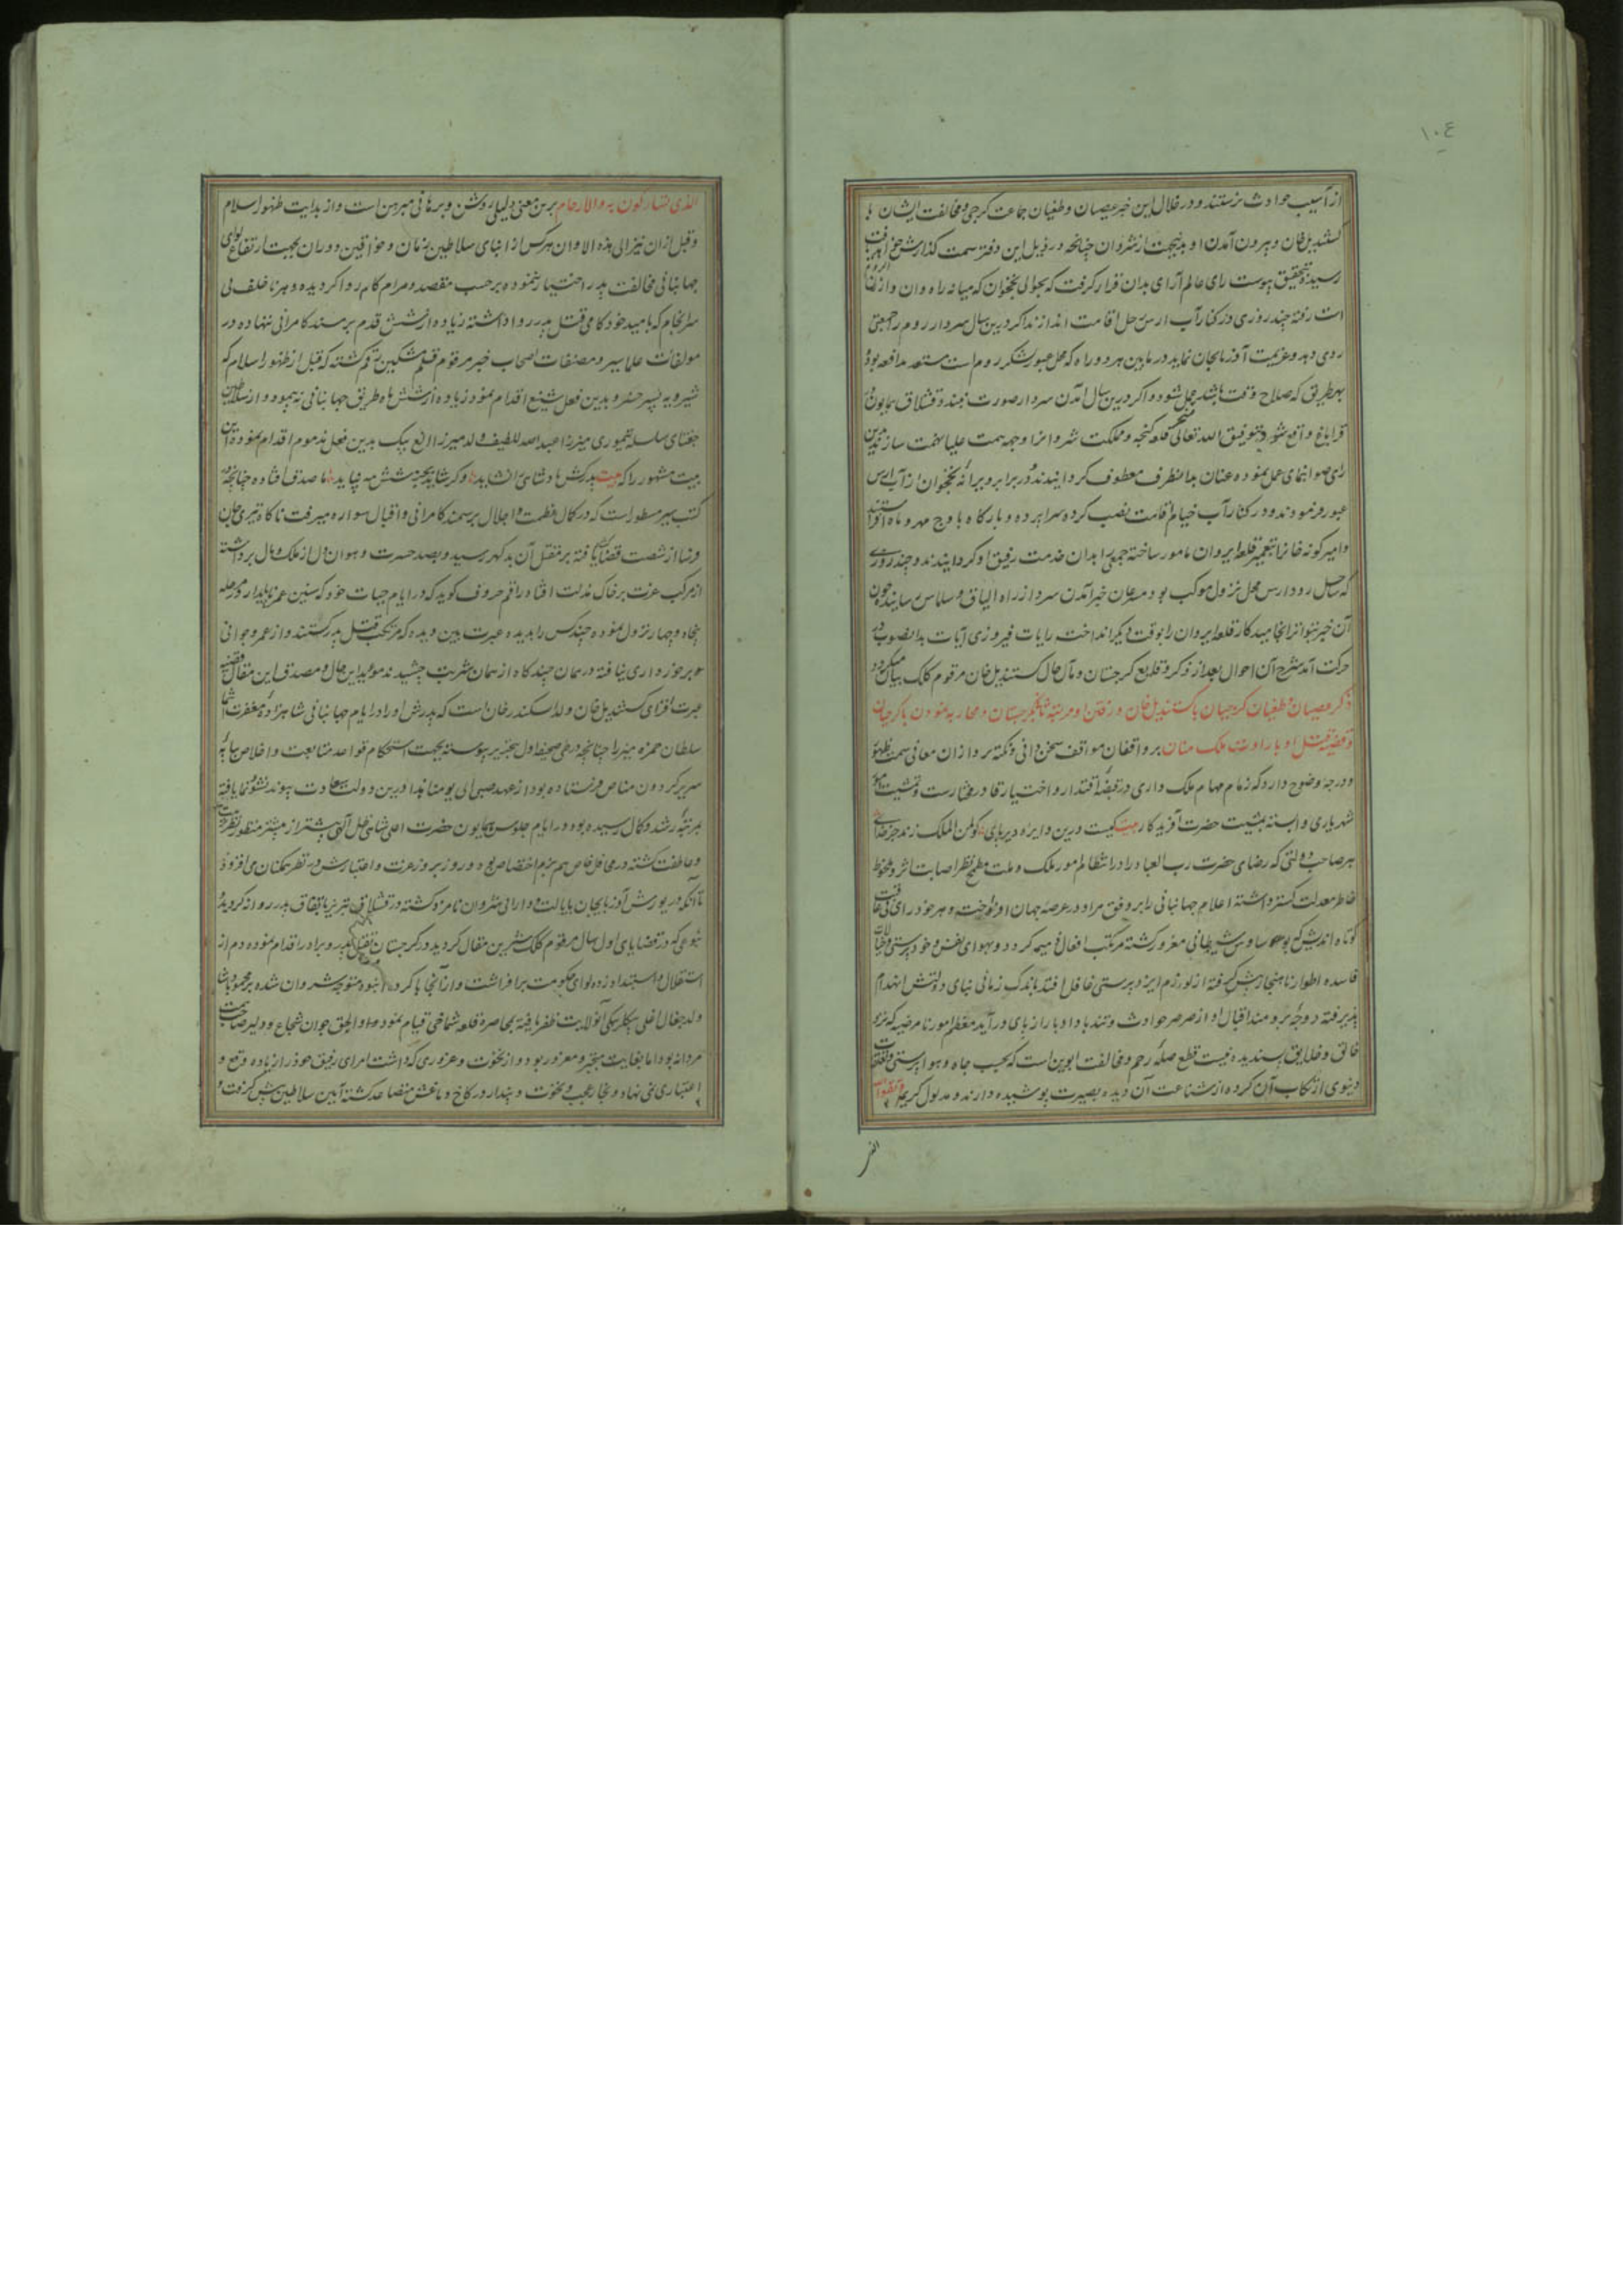 ١٠٤
از آسیب حوادث نرستند و در خلال این خبر عصیان و طغیان جماعت گرجی و مخالفت ایشان با
کستندیل خان و بیرون آمدن او بدینجهت از شروان چنانچه در ذیل این دفتر سمت گذارش خواهد یافت
رسید و بتحقیق پیوست رای عالم آرای بدان قرار گرفت که بحوالی نخجوان که میانه راه وان و ارزن الروم
است رفته چند روزی در کنار آب ارس رحل اقامت اندازند اگر درین سال سردار روم را جمعیتی
روی دهد و عزیمت آذربایجان نماید در مابین هر دو راه که محل عبور لشکر روم است مستعد مدافعه بوده
بهر طریق که صلاح وقت باشد بعمل شود و اگر درین سال آمدن سردار صورت نبندد قشلاق همایون در
قراباغ واقع شود و بتوفیق الله تعالی تسخیر قلعه گنجه و مملکت شروانرا وجهه همت علیا نهمت سازند بدین
رای صوابنمای عمل نموده عنان بدانطرف معطوف گردانیدند و در برابر ویرانه نخجوان از آب ارس
عبور فرمودند و در کنار آب خیام اقامت نصب کرده سراپرده و بارگاه باوج مهر و ماه افراشتند
و امیر گونه خانرا بتعمیر قلعه ایروان مامور ساخته جمعی را بدان خدمت رفیق او گردانیدند و چند روزی
که ساحل رود ارس محل نزول موکب بود مسرعان خبر آمدن سردار از راه الباق و سلماس رسانیدند چون
آن خبر بتواتر انجامید کار قلعه ایروان را بوقت دیگر انداخت رایات فیروزی آیات بدانصوب در
حرکت آمد شرح آن احوال بعد از ذکر وقایع گرجستان و مآل حال کستندیل خان مرقوم کلک بیان میگردد
ذکر عصیان و طغیان گرجیان با کستندیل خان و رفتن او مرتبه ثانی بگرجستان و محاربه نمودن با گرجیان
و قضیه قتل او باراده ملک منان بر واقفان مواقف سخن دانی و نکته پردازان معانی سمت ظهور
و درجه وضوح دارد که زمام مهام ملک داری در قبضه اقتدار و اختیار قادر مختارست و تمشیت امور
شهریاری وابسته بمشیت حضرت آفریدگار بیت کیست درین دایره دیرپای کو لمن الملک زند جز خدای
هر صاحب دولتی که رضای حضرت رب العباد را در انتظام امور ملک و ملت مطمح نظر اصابت اثر و ملحوظ
خاطر معدلت گستر داشته اعلام جهانبانی را بر وفق مراد در عرصه جهان او افراخت و هر خود رای بی عاقبت
کوتاه اندیش که بوساوس شیطانی مغرور گشته مرتکب افعال ذمیمه گردد و بهوای نفس و خودپرستی و خیالات
فاسده اطوار ناهنجار پیش گرفته از لوازم ایزدپرستی غافل افتد باندک زمانی بنای دولتش انهدام
پذیرفته دوحه برومند اقبال او از صرصر حوادث و تند باد ادبار از پای درآید معظم امور نامرضیه که نزد
خالق و خلایق پسندیده نیست قطع صله رحم و مخالفت ابوین است که بحب جاه و هواپرستی و تعلقات
دنیوی ارتکاب آن کرده از شناعت آن دیده بصیرت پوشیده دارند و مدلول کریمه و اتقوا الله
الذی
الذی تساءلون به و الارحام برین معنی دلیلی روشن و برهانی مبرهن است و از بدایت ظهور اسلام
و قبل از ان نیز الی هذه الاوان هر کس از ابنای سلاطین زمان و خواقین دوران بجهت ارتفاع لوای
جهانبانی مخالفت پدر اختیار نموده بر حسب مقصد و مرام کام روا گردیده و هر ناخلف بی
سرانجام که بامید خودکامی قتل پدر روا داشته زیاده از شش قدم بر مسند کامرانی ننهاده در
مولفات علما سیر و مصنفات اصحاب خبر مرقوم قلم مشکین رقم گشته که قبل از ظهور اسلام که
شیرویه پسر خسرو بدین فعل شنیع اقدام نمود زیاده از شش ماه طریق جهانبانی نه پیمود و از سلاطین
جغتای سلسله تیموری میرزا عبداللطیف ولد میرزا الغ بیک بدین فعل مذموم اقدام نموده این
بیت مشهور را که بیت پدرکش پادشاهی را نشاید وگر شاید بجز شش مه نپاید ما صدق افتاده چنانچه در
کتب سیر مسطور است که در کمال عظمت و اجلال بر سمند کامرانی و اقبال سواره میرفت ناگاه تیری جان
فرسا از شست قضا گشاد یافته بر مقتل آن بدگهر رسید و بصد حسرت و هوان دل از ملک و مال برداشته
از مرکب عزت بر خاک مذلت افتاد راقم حروف گوید که در ایام حیات خود که سنین عمر ناپایدار بمرحله
پنجاه و چهار نزول نموده چند کس را بدیده عبرت بین دیده که مرتکب قتل پدر گشتند و از عمر و جوانی
برخورداری نیافته در همان چندگاه از همان شربت چشیدند موید این حال و مصدق این مقال قضیه
عبرت افزای کستندیل خان ولد اسکندر خان است که پدرش او را در ایام جهانبانی شاهزاده مغفرت انتما
سلطان حمزه میرزا چنانچه در طی صحیفه اول بتحریر پیوسته بجهت استحکام قواعد متابعت و اخلاص بپایه
سریر گردون مناص فرستاده بود از عهد صبی الی یومنا هذا درین دولت سعادت پیوند نشو و نما یافته
بمرتبه رشد و کمال رسیده بود در ایام جلوس همایون حضرت اعلی شاهی ظل اللهی بیشتر از پیشتر منظور نظر تربیت
و عاطفت گشته در محافل خاص هم بزم اختصاص بود و روز بروز عزت و اعتبارش در نظر همگنان می افزود
تا آنکه در یورش آذربایجان بایالت و دارائی شروان نامزد گشته در قشلاق تبریز باتفاق پدر روانه گردیده
بنوعی که در قضایای اول سال مرقوم کلک شیرین مقال گردید در گرجستان بقتل پدر و برادر اقدام نموده دم از
استقلال و استبداد زده لوای حکومت برافراشت و از آنجا با گروه انبوه متوجه شروان شده بر محمود پاشا
ولد جغال اغلی بیگلربیگی آنولایت ظفر یافته بمحاصره قلعه شماخی قیام نمود و او الحق جوان شجاع و دلیر صاحب همت
مردانه بود اما بغایت متجبر و مغرور بود و از نخوت و غروری که داشت امرای رفیق خود را زیاده وقع و
اعتباری نمی نهاد و بخار عجب و نخوت و پندار در کاخ دماغش متصاعد گشته آیین سلاطین پیش گرفت و